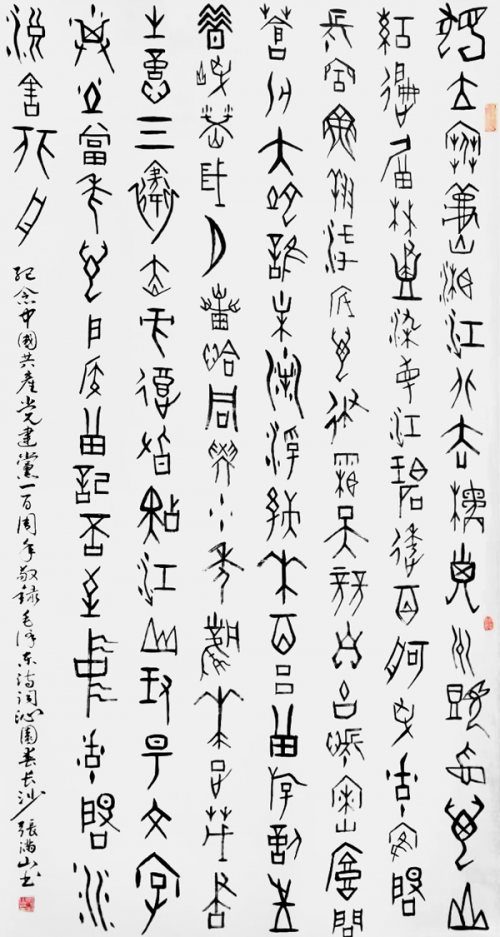 獨立寒秋湘江北去橘子洲頭看萬山
紅遍層林盡染漫江碧透百舸爭流鷹擊
長空魚翔淺底萬類霜天競自由悵寥廓問
蒼茫大地誰主沉浮攜來百侶曾游憶往
昔崢嶸歲月稠恰同學少年風華正茂書
生意氣揮斥方遒指點江山激揚文字
糞土當年萬戶侯曾記否到中流擊水
浪遏飛舟
紀念中國共產党建黨一百周年敬録毛泽东诗词沁園春长沙 張满山书